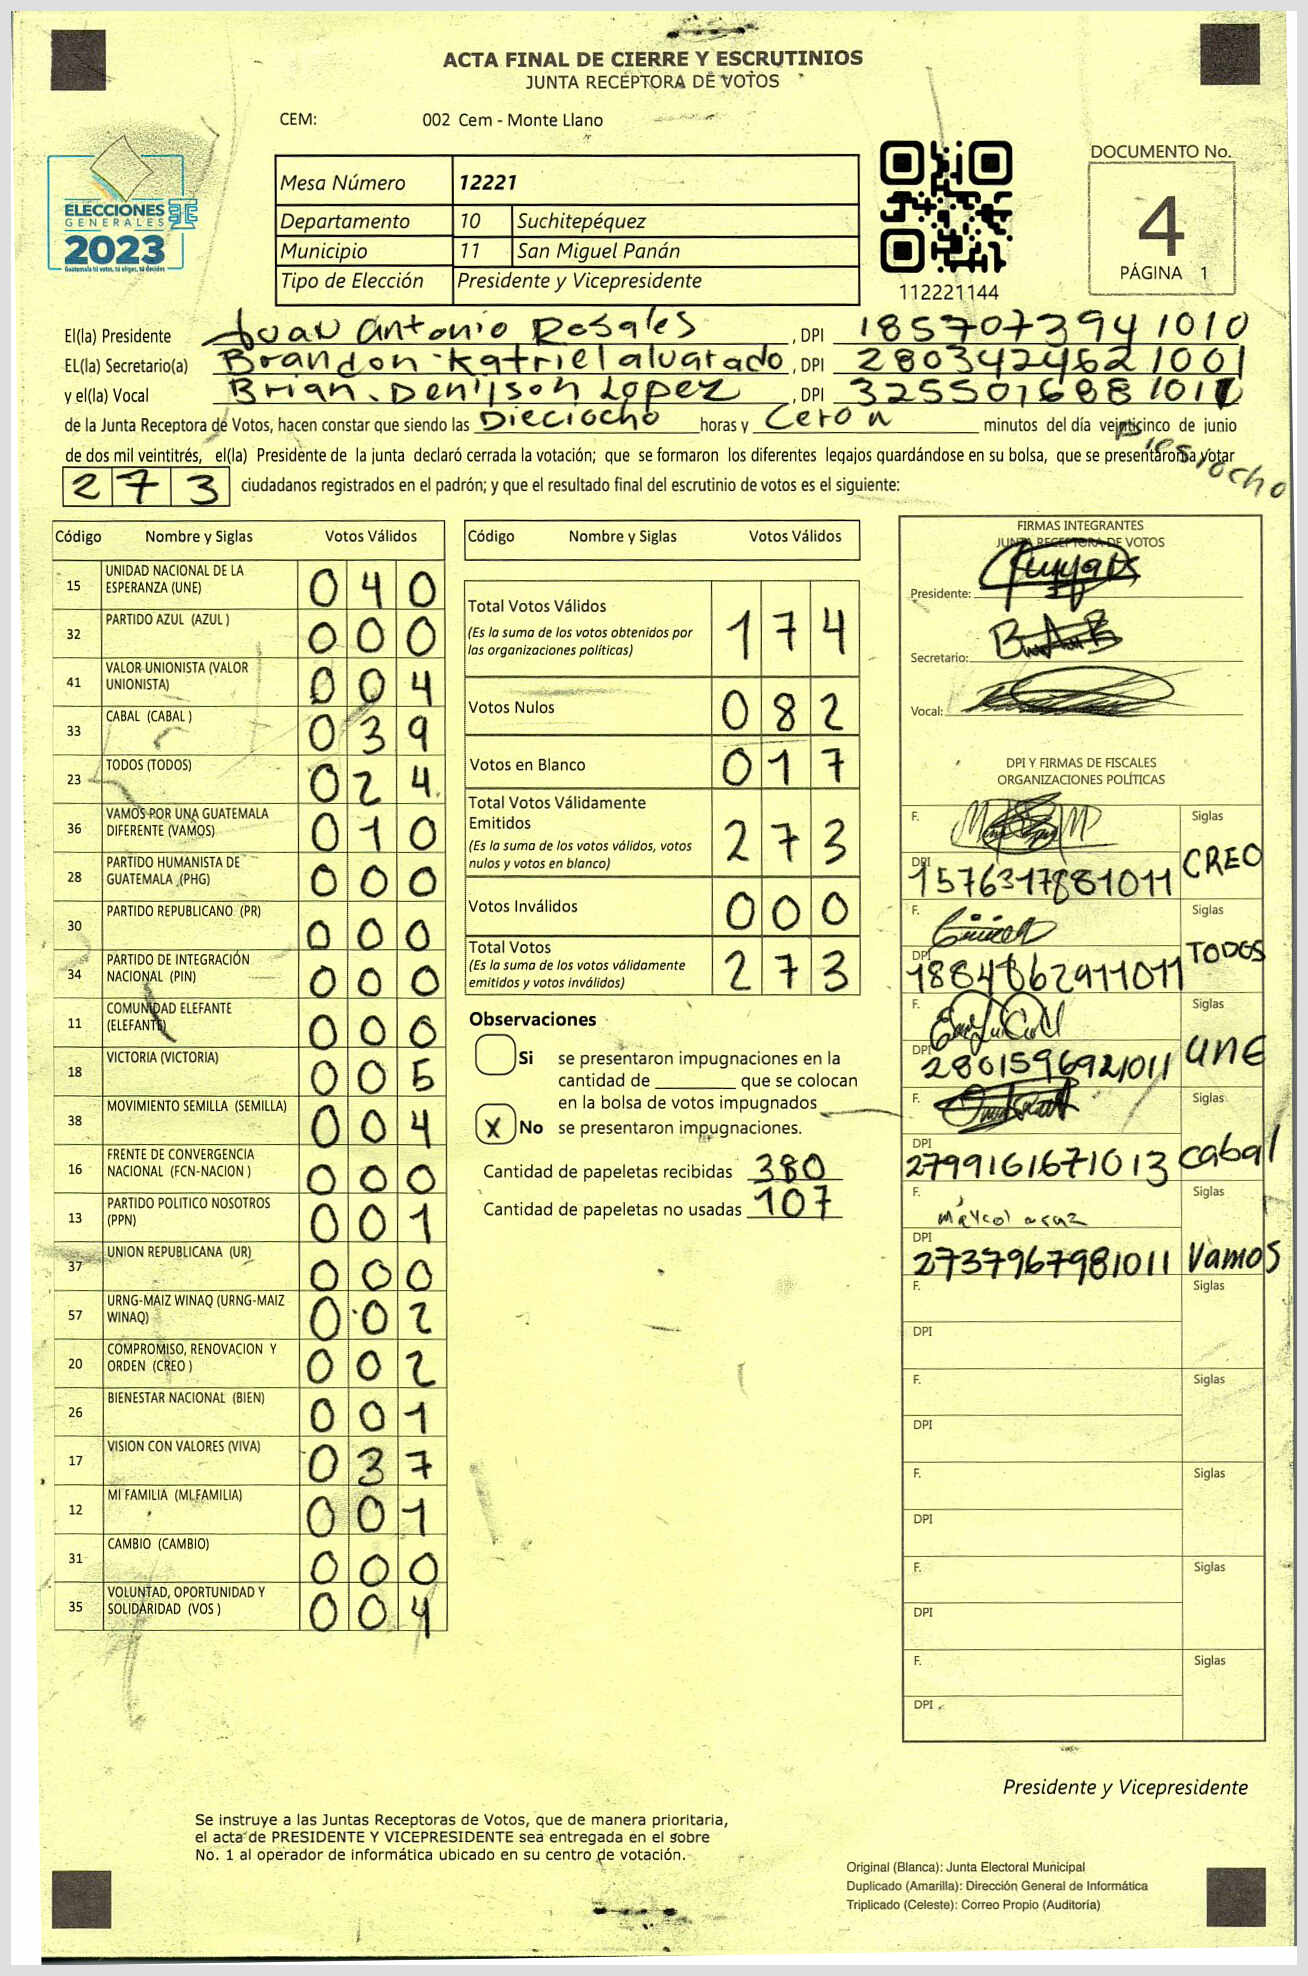 ACTA FINAL DE CIERRE Y ESCRUTINIOS
JUNTA RECEPTORA DE VOTOS
CEM: 002 Cem - Monte Llano
ELECCIONES
GENERALES
2023
Guatemala tú votas, tú eliges, tú decides
Mesa Número 12221
Departamento 10 Suchitepéquez
Municipio 11 San Miguel Panán
Tipo de Elección Presidente y Vicepresidente
112221144
DOCUMENTO No.
4
PÁGINA 1
El(la) Presidente Juan Antonio Rosales , DPI 1857073941010
EL(la) Secretario(a) Brandon Katriel alvarado , DPI 2803424621001
y el(la) Vocal Brian Denilson Lopez , DPI 325501688101
de la Junta Receptora de Votos, hacen constar que siendo las Dieciocho horas y Cero minutos del día veinticinco de junio
de dos mil veintitrés, el(la) Presidente de la junta declaró cerrada la votación; que se formaron los diferentes legajos quardándose en su bolsa, que se presentaron a votar
273 ciudadanos registrados en el padrón; y que el resultado final del escrutinio de votos es el siguiente:
Código Nombre y Siglas Votos Válidos
15 UNIDAD NACIONAL DE LA ESPERANZA (UNE) 040
32 PARTIDO AZUL (AZUL ) 000
41 VALOR UNIONISTA (VALOR UNIONISTA) 004
33 CABAL (CABAL ) 039
23 TODOS (TODOS) 024
36 VAMOS POR UNA GUATEMALA DIFERENTE (VAMOS) 010
28 PARTIDO HUMANISTA DE GUATEMALA (PHG) 000
30 PARTIDO REPUBLICANO (PR) 000
34 PARTIDO DE INTEGRACIÓN NACIONAL (PIN) 000
11 COMUNIDAD ELEFANTE (ELEFANTE) 000
18 VICTORIA (VICTORIA) 005
38 MOVIMIENTO SEMILLA (SEMILLA) 004
16 FRENTE DE CONVERGENCIA NACIONAL (FCN-NACION ) 000
13 PARTIDO POLITICO NOSOTROS (PPN) 001
37 UNION REPUBLICANA (UR) 000
57 URNG-MAIZ WINAQ (URNG-MAIZ WINAQ) 002
20 COMPROMISO, RENOVACION Y ORDEN (CREO ) 002
26 BIENESTAR NACIONAL (BIEN) 001
17 VISION CON VALORES (VIVA) 037
12 MI FAMILIA (MI FAMILIA) 001
31 CAMBIO (CAMBIO) 000
35 VOLUNTAD, OPORTUNIDAD Y SOLIDARIDAD (VOS ) 004
Código Nombre y Siglas Votos Válidos
Total Votos Válidos 174
(Es la suma de los votos obtenidos por
las organizaciones políticas)
Votos Nulos 082
Votos en Blanco 017
Total Votos Válidamente
Emitidos 273
(Es la suma de los votos válidos, votos
nulos y votos en blanco)
Votos Inválidos 000
Total Votos 273
(Es la suma de los votos válidamente
emitidos y votos inválidos)
Observaciones
Si se presentaron impugnaciones en la
cantidad de ________ que se colocan
en la bolsa de votos impugnados
X No se presentaron impugnaciones.
Cantidad de papeletas recibidas 380
Cantidad de papeletas no usadas 107
FIRMAS INTEGRANTES
JUNTA RECEPTORA DE VOTOS
Presidente:
Secretario:
Vocal:
DPI Y FIRMAS DE FISCALES
ORGANIZACIONES POLÍTICAS
F. Siglas
DPI 1576317881011 CREO
F. Siglas
DPI 1884862911011 TODOS
F. Siglas
DPI 2801596921011 UNE
F. Siglas
DPI 2799161671013 Cabal
F. Siglas
DPI 2737967981011 Vamos
F. Siglas
DPI
F. Siglas
DPI
F. Siglas
DPI
F. Siglas
DPI
F. Siglas
DPI
Presidente y Vicepresidente
Se instruye a las Juntas Receptoras de Votos, que de manera prioritaria,
el acta de PRESIDENTE Y VICEPRESIDENTE sea entregada en el sobre
No. 1 al operador de informática ubicado en su centro de votación.
Original (Blanca): Junta Electoral Municipal
Duplicado (Amarilla): Dirección General de Informática
Triplicado (Celeste): Correo Propio (Auditoría)